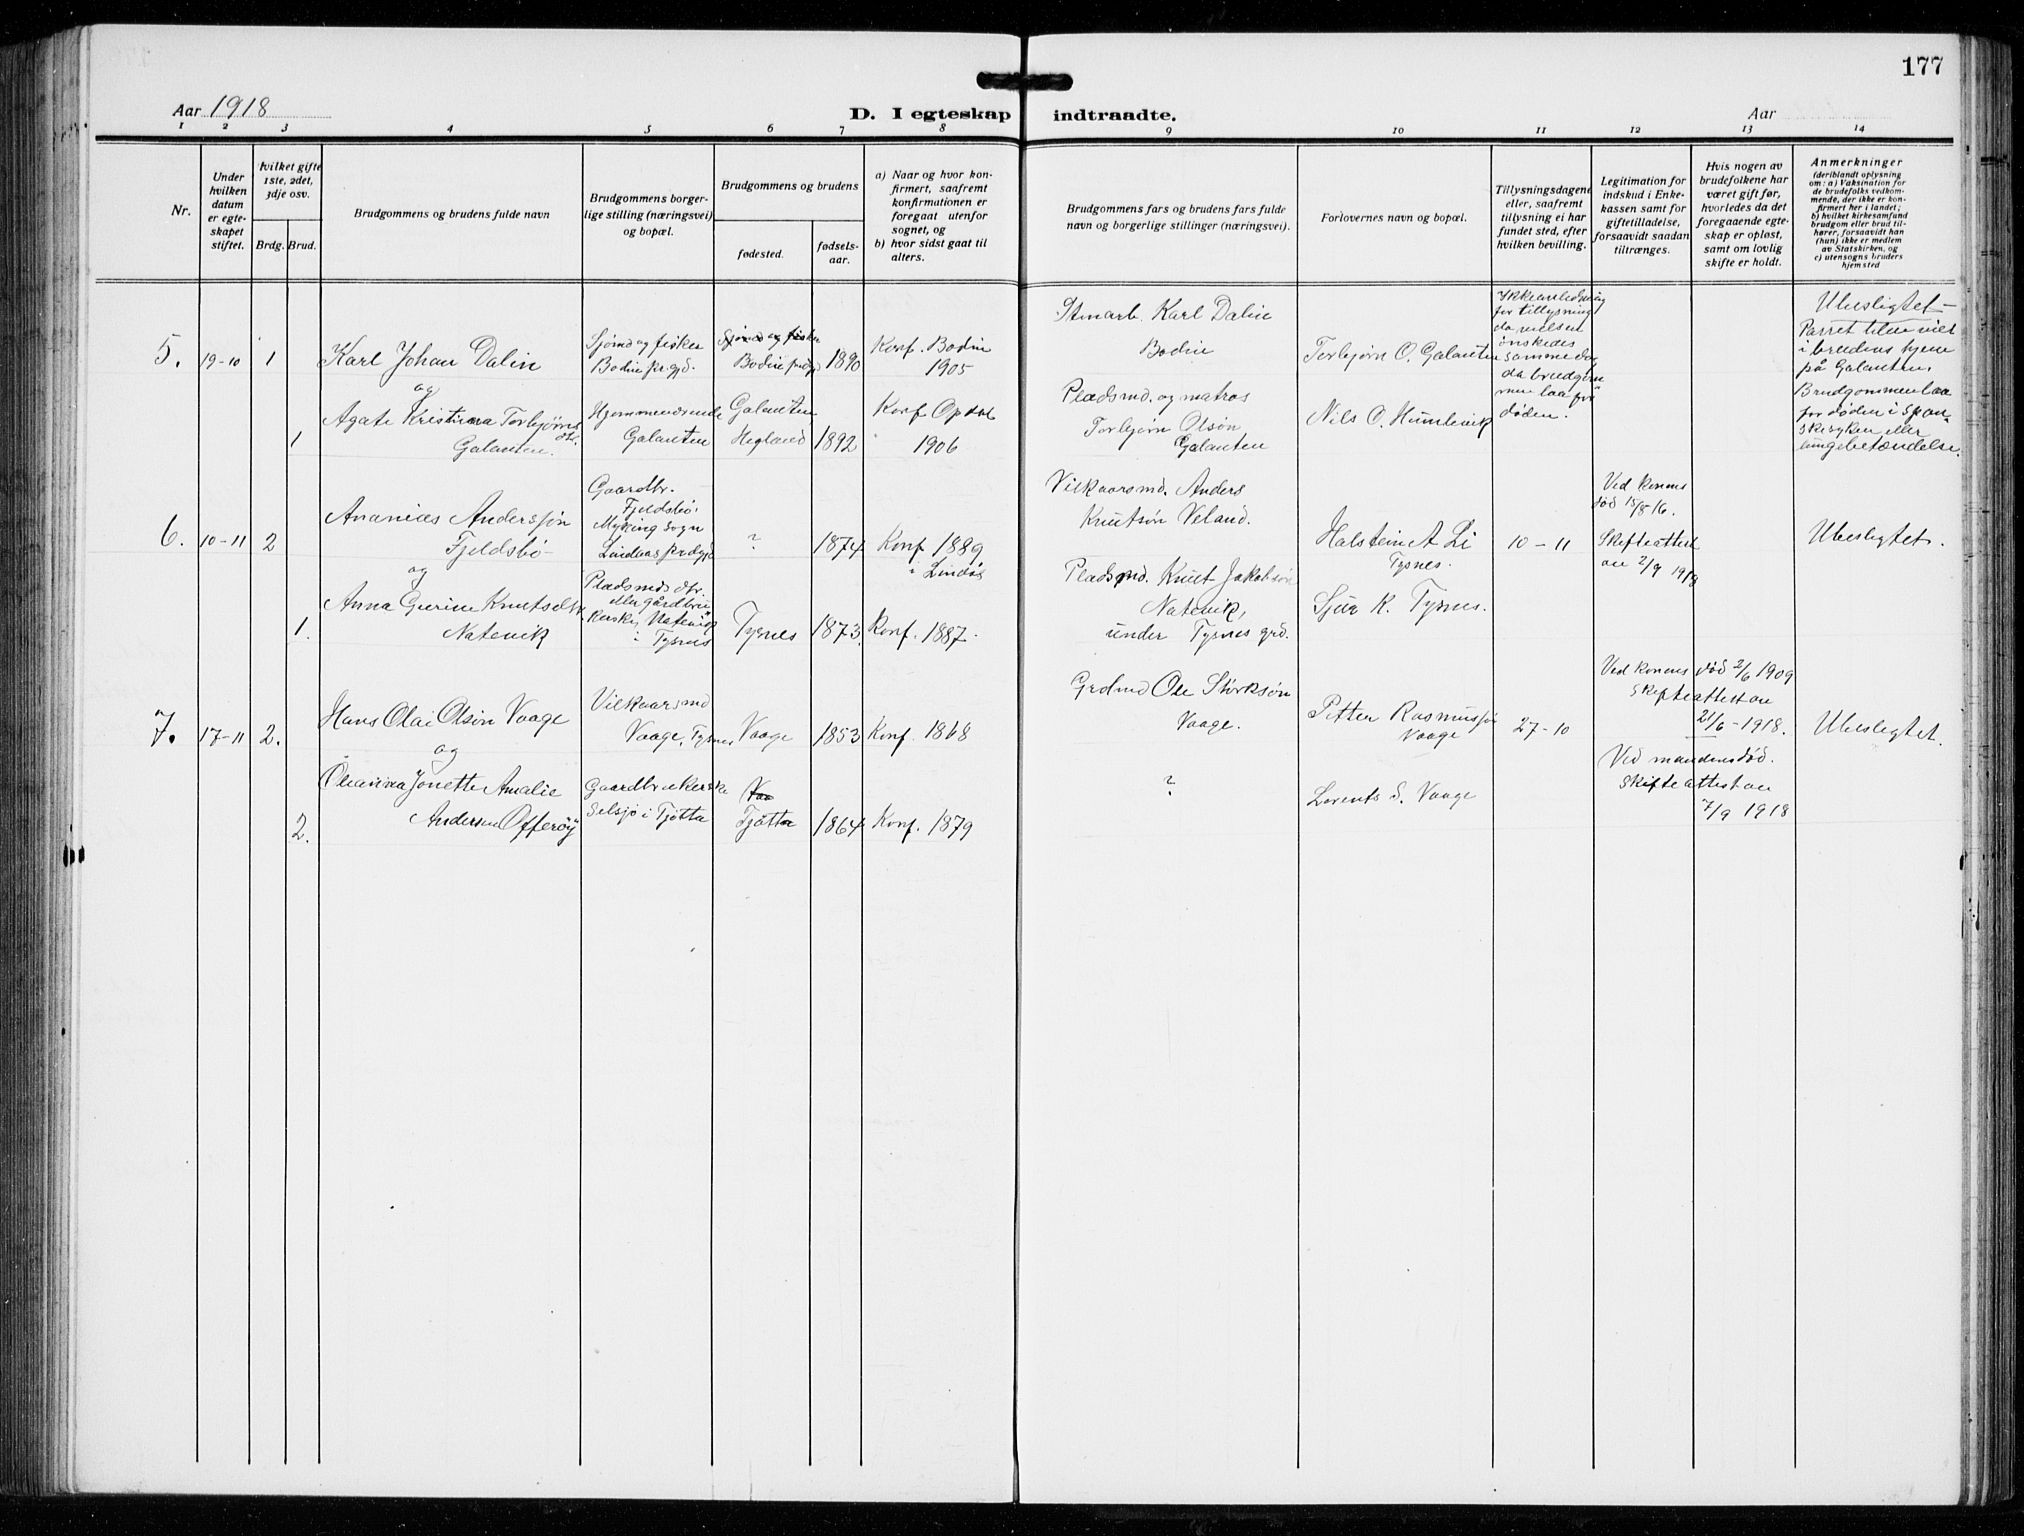 177
Aar 1918
D. I egteskap indtraadte.
Aar
1 2 3 4 5 6 7 8 9 10 11 12 13 14
Nr.
Under
hvilken
datum
er egte-
skapet
stiftet.
hvilket gifte
1ste, 2det,
3dje osv.
Brdg. Brud.
Brudgommens og brudens fulde navn
Brudgommens borger-
lige stilling (næringsvei)
og bopæl.
Brudgommens og brudens
fødested.
fødsels-
aar.
a) Naar og hvor kon-
firmert, saafremt
konfirmationen er
foregaat utenfor
sognet, og
b) hvor sidst gaat til
alters.
Brudgommens fars og brudens fars fulde
navn og borgerlige stillinger (næringsvei).
Forlovernes navn og bopæl.
Tillysningsdagene
eller, saafremt
tillysning ei har
fundet sted, efter
hvilken bevilling.
Legitimation for
indskud i Enke-
kassen samt for
giftetilladelse,
forsaavidt saadan
tiltrænges.
Hvis nogen av
brudefolkene har
været gift før,
hvorledes da det
foregaaende egte-
skap er opløst,
samt om lovlig
skifte er holdt.
Anmerkninger
(deriblandt oplysning
om: a) Vaksination for
de brudefolks vedkom-
mende, der ikke er kon-
firmert her i landet;
b) hvilket kirkesamfund
brudgom eller brud til-
hører, forsaavidt han
(hun) ikke er medlem
av Statskirken, og
c) utensogns bruders
hjemsted
5. 19-10 1
Karl Johan Dalin
og
Sjømd og fisker
Bodin pr.gjd.
Sjømd og fisker
Bodin prgjd
1890
Konf. Bodin
1905
Karl Dalin
Bodin
Torbjørn O. Galauten
Ikke anledning
for tillysning
da vielsen
ønskedes
samme dag
da brudgom
men laa for
døden.
Ubesligtet
Parret blev viet
i brudens hjem
på Galauten.
Brudgommen laa
for døden i Span-
skesyken eller
lungebetændelse.
1
Agate Kristina Torbjørns
dtr.
Galauten.
Hjemmeværende
Galauten
Galauten
Hegland
1892
Konf Opdal
1906
Pladsmd. og matros
Torbjørn Olsøn
Galauten
Nils O. Humlevik
6. 10-11 2
Ananias Andersøn
Fjeldsbø
og
Gaardbr.
Fjeldsbø,
Myking sogn
Lindaas prdgjd
?
1874
Konf 1889
i Lindås
Vilkaarsmd. Anders
Knutsøn Veland.
Halstein A Li
Tysnes.
10-11
Ved konens
død 15/8 16.
Skifteattest
av 2/9 1918
Ubesligtet.
1.
Anna Gurine Knutsdtr.
Natevik
Pladsmds dtr.
eller gårdbru
kerske, Natevik
i Tysnes
Tysnes
1873
Konf. 1887.
Pladsmd. Knut Jakobsøn
Natevik,
under Tysnes grd.
Sjur K. Tysnes.
7. 17-11 2.
Hans Olai Olsøn Vaage
og
Vilkaarsmd
Vaage, Tysnes
Vaage
1853
Konf. 1868
Grdmd Ole Størksøn
Vaage.
Petter Rasmussøn
Vaage
27-10
Ved konens død 2/6 1909
Skifteattest av
21/6-1918.
Ubesligtet.
2.
Oleanna Jonette Amalie
Andersen Offerøy
Gaardbrukerske
Selsjø i Tjøtta
Vaa
Tjøtta
1864
Konf. 1879
?
Lorents S. Vaage
Ved mandens død.
Skifteattest av
7/9 1918